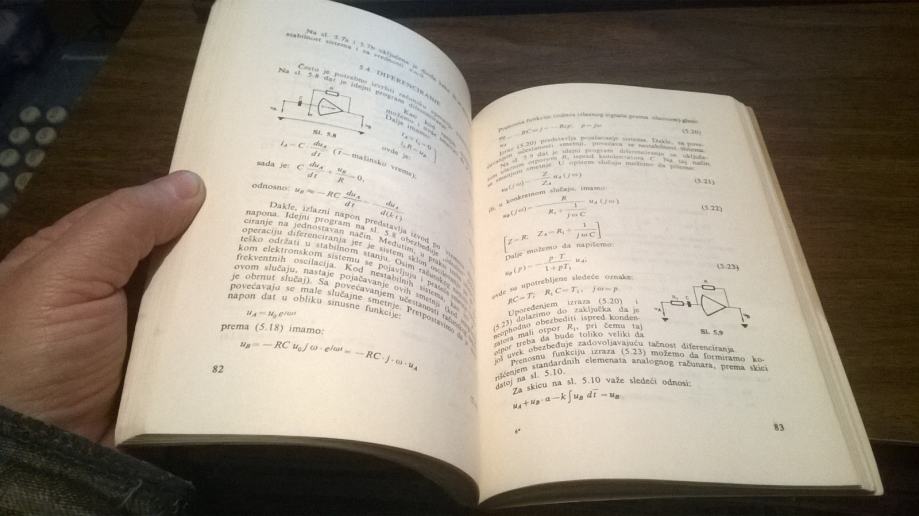 Na sl. 5.7a i 5.7b uključena je dioda
stabilnost sistema i za vrednosti
5.4. DIFERENCIRANJE
Često je potrebno izvršiti računsku operaciju
Na sl. 5.8 dat je idejni program diferenciranja.
Kao kod
možemo i ovde
Dalje imamo:
Sl. 5.8
ovde je:
(t—mašinsko vreme);
sada je: C du_A/dt + u_B/R = 0,
odnosno: u_B = — RC du_A/dt = — du_A/d(kt)
Dakle, izlazni napon predstavlja izvod po
napona. Idejni program na sl. 5.8 obezbeđuje
ciranje na jednostavan način. Međutim, u praksi
operaciju diferenciranja jer je sistem sklon oscilacijama
teško održati u stabilnom stanju. Osim računskog
kom elektronskom sistemu se pojavljuju i prateće
frekventnih oscilacija. Kod nestabilnih sistema,
ovom slučaju, nastaje pojačavanje ovih smetnji (kod
je obrnut slučaj). Sa povećavanjem učestanosti računskog
povećavaju se male slučajne smetnje. Pretpostavimo da je
napon dat u obliku sinusne funkcije:
u_A = u_0 e^jωt
prema (5.18) imamo:
u_B = — RC u_0 j ω · e^jωt = — RC · j · ω · u_A
82
Prenosna funkcija (odnos izlaznog signala prema ulaznom) glasi:
u_B/u_A = — RC ω j = — Rcp, p = jω (5.20)
Izraz (5.20) predstavlja pojačavanje sistema. Dakle, sa pove-
ćavanjem učestanosti smetnji, povećava se nestabilnost sistema.
Na sl. 5.9 dat je idejni program diferenciranja sa uključe-
nim ulaznim otporom R₁ ispred kondenzatora C. Na taj način
se smanjuju smetnje. U opštem slučaju možemo da pišemo:
u_B(jω) = — Z/Z_A u_A (jω) (5.21)
ili, u konkretnom slučaju, imamo:
u_B(jω) = — R/(R₁ + 1/jωC) u_A (jω) (5.22)
[Z = R; Z_A = R₁ + 1/jωC]
Dalje možemo da napišemo:
u_B (p) = — p·T/(1+pT₁) u_A, (5.23)
ovde su upotrebljene sledeće oznake:
RC = T; R₁C = T₁, jω = p.
Upoređenjem izraza (5.20) i
(5.23) dolazimo do zaključka da je
neophodno obezbediti ispred konden-
zatora mali otpor R₁, pri čemu taj
otpor treba da bude toliko veliki da
još uvek obezbeđuje zadovoljavajuću tačnost diferenciranja.
Sl. 5.9
Prenosnu funkciju izraza (5.23) možemo da formiramo ko-
rišćenjem standardnih elemenata analognog računara, prema skici
datoj na sl. 5.10.
Za skicu na sl. 5.10 važe sledeći odnosi:
u_A + u_B · a — k ∫ u_B dt = u_B
6*
83